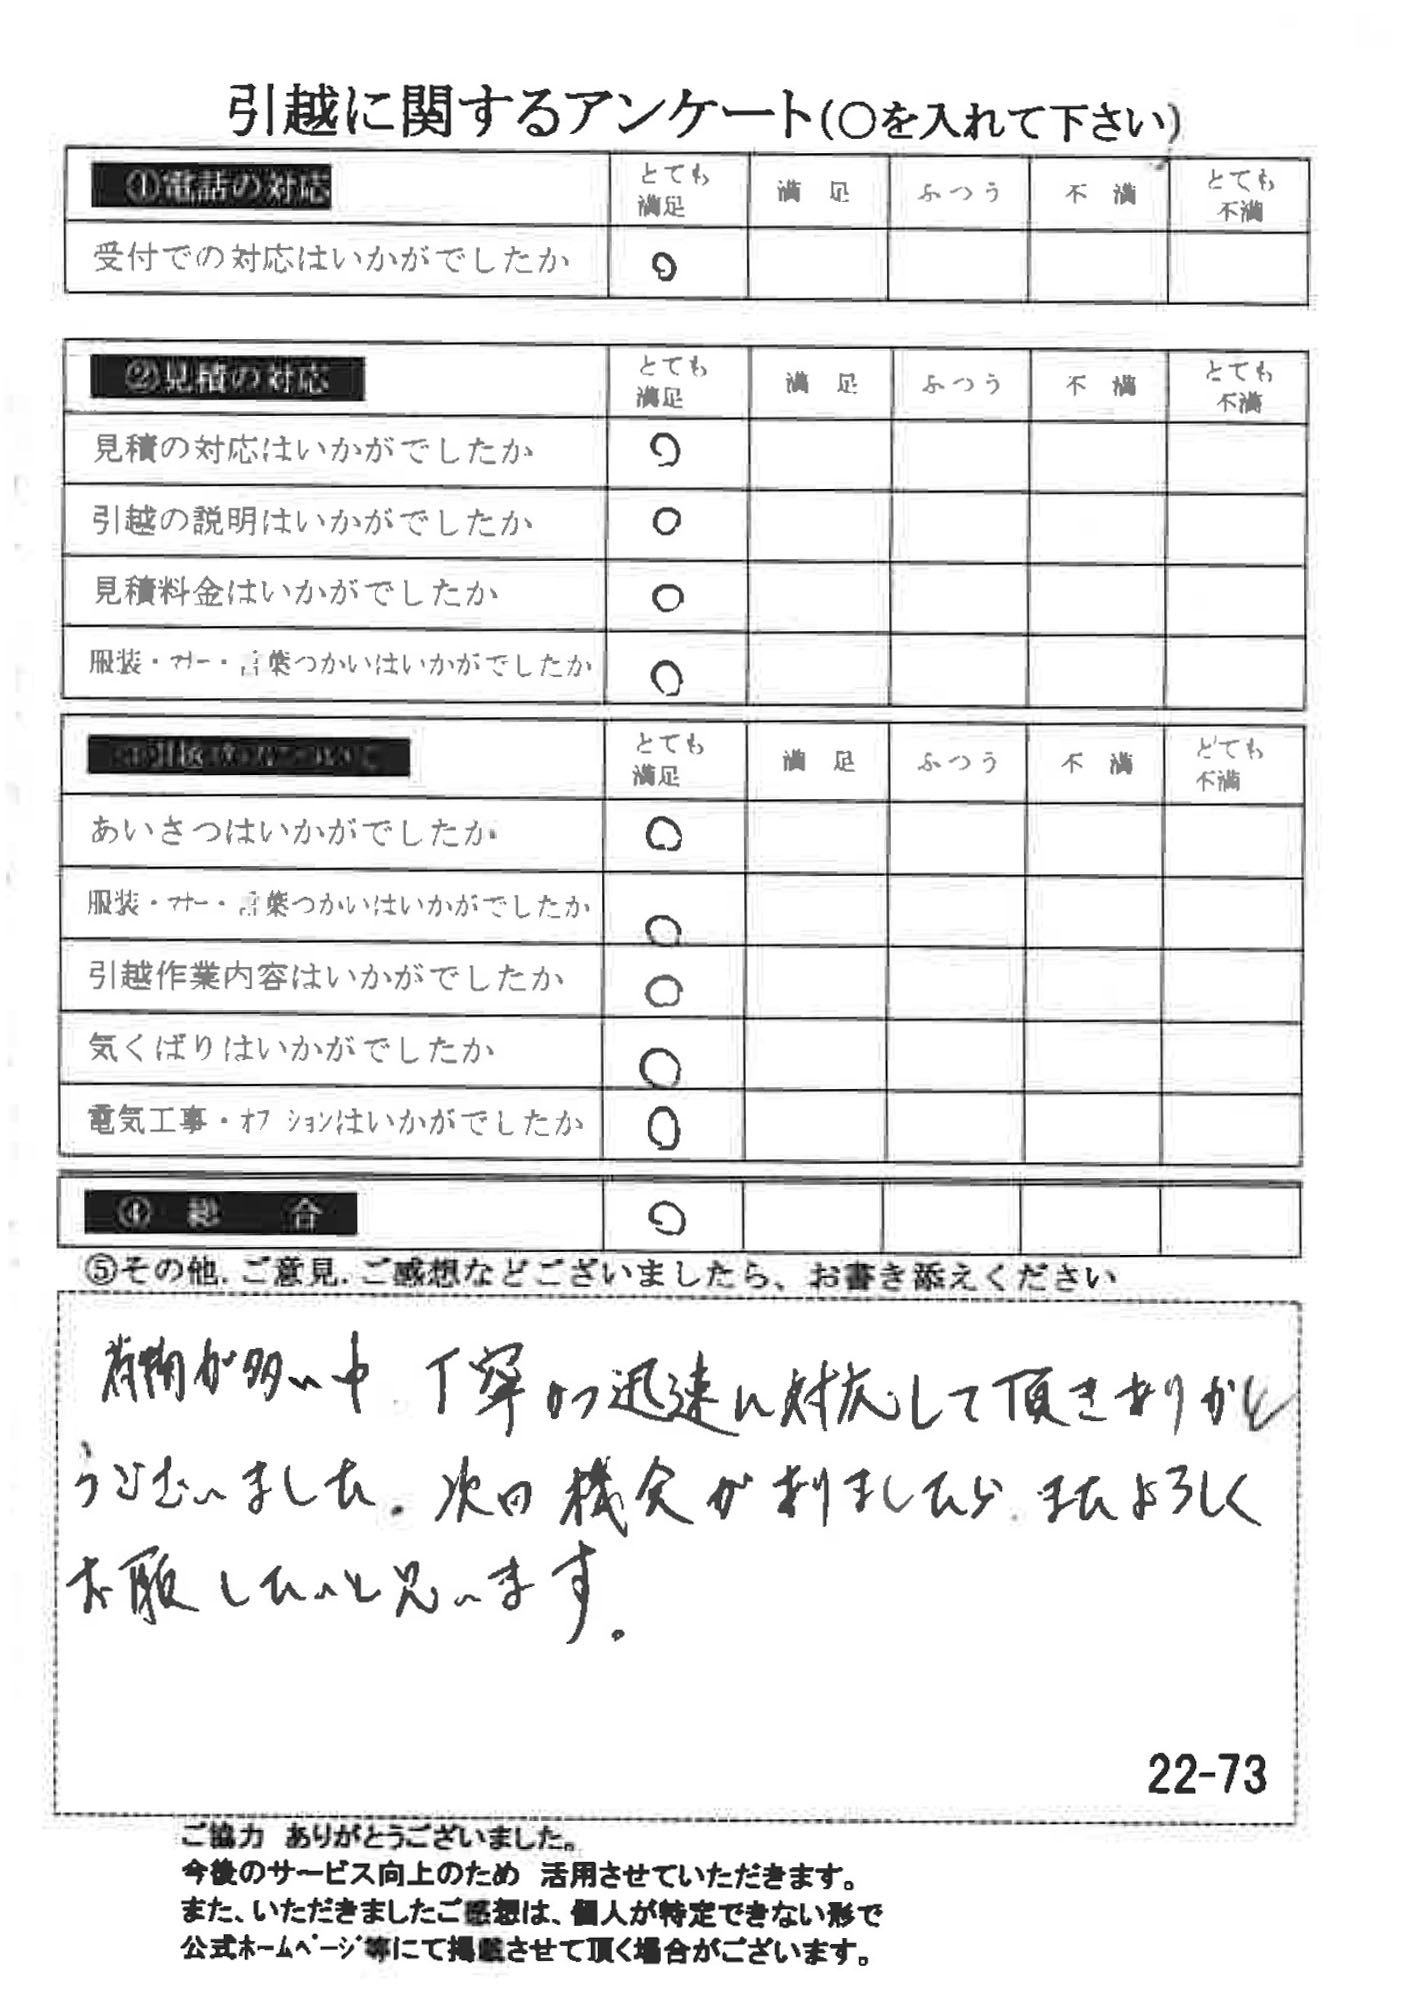 引越に関するアンケート(〇を入れて下さい)
①電話の対応 とても満足 満足 ふつう 不満 とても不満
受付での対応はいかがでしたか ○
②見積の対応 とても満足 満足 ふつう 不満 とても不満
見積の対応はいかがでしたか ○
引越の説明はいかがでしたか ○
見積料金はいかがでしたか ○
服装・マナー・言葉つかいはいかがでしたか ○
とても満足 満足 ふつう 不満 とても不満
あいさつはいかがでしたか ○
服装・マナー・言葉つかいはいかがでしたか ○
引越作業内容はいかがでしたか ○
気くばりはいかがでしたか ○
電気工事・オプションはいかがでしたか ○
④ 総 合 ○
⑤その他.ご意見.ご感想などございましたら、お書き添えください
が多い中、丁寧かつ迅速に対応して頂きありがと
うございました。次回機会がありましたら、またよろしく
お願したいと思います。
22-73
ご協力 ありがとうございました。
今後のサービス向上のため 活用させていただきます。
また、いただきましたご感想は、個人が特定できない形で
公式ホームページ等にて掲載させて頂く場合がございます。